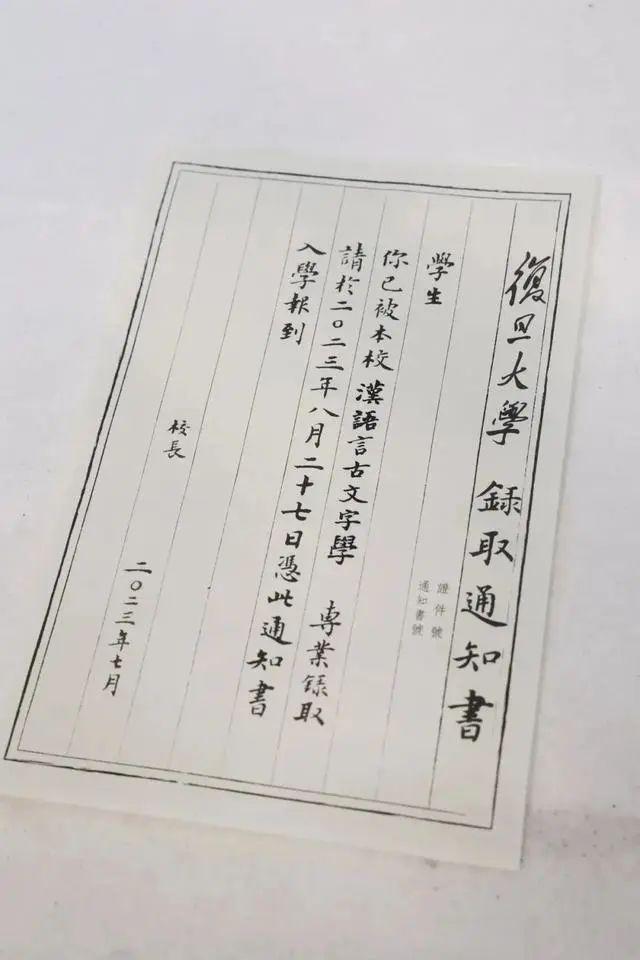 復旦大學 録取通知書
學生
證件號
通知書號
你已被本校 漢語言古文字學 專業録取
請於二〇二三年八月二十七日憑此通知書
入學報到
校長
二〇二三年七月